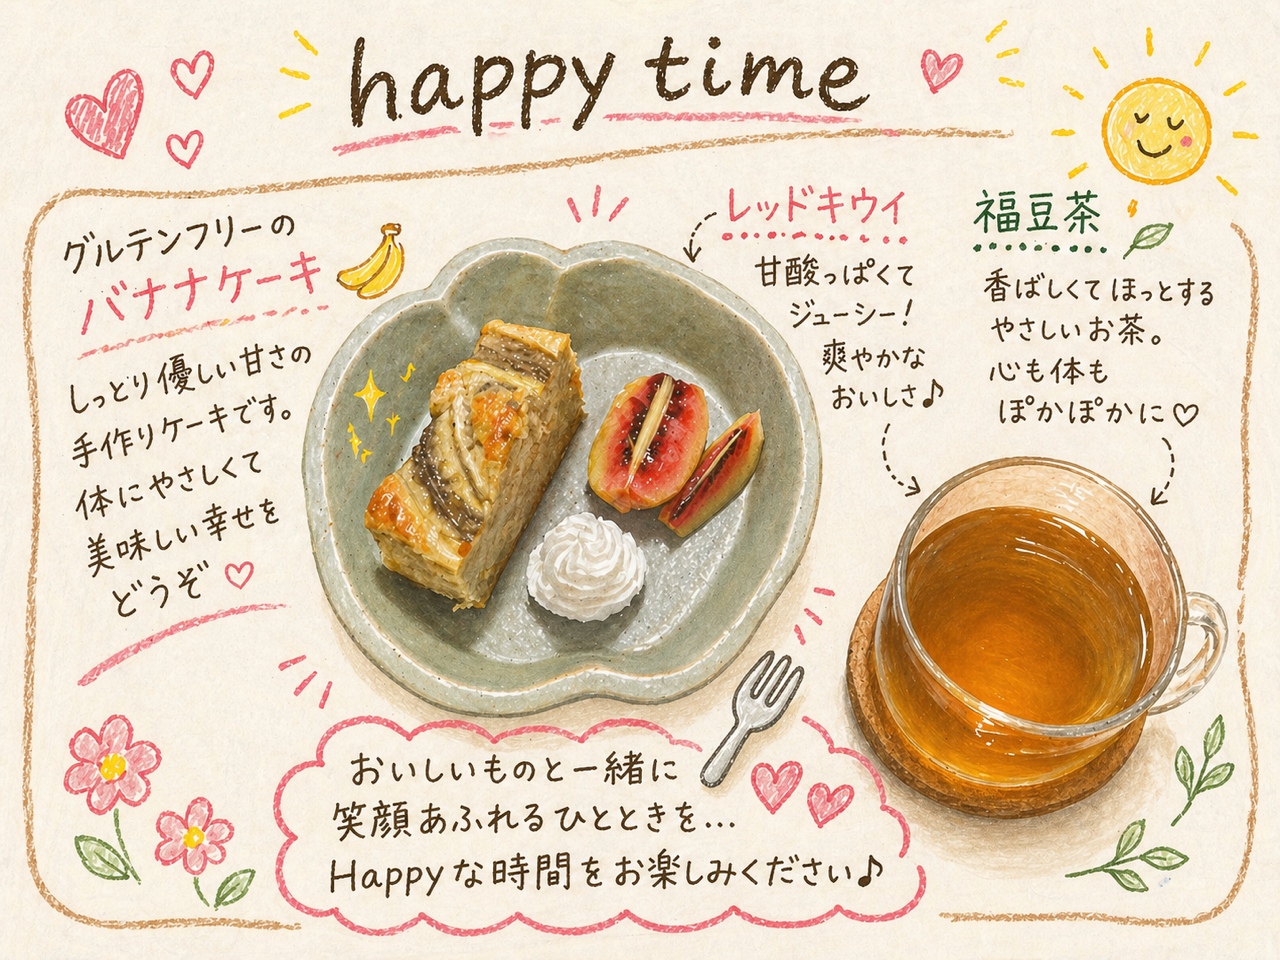 happy time
グルテンフリーの
バナナケーキ
しっとり優しい甘さの
手作りケーキです。
体にやさしくて
美味しい幸せを
どうぞ♡
レッドキウイ
甘酸っぱくて
ジューシー!
爽やかな
おいしさ♪
福豆茶
香ばしくてほっとする
やさしいお茶。
心も体も
ぽかぽかに♡
おいしいものと一緒に
笑顔あふれるひとときを...
Happyな時間をお楽しみください♪